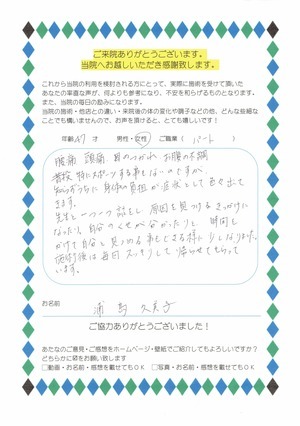 ご来院ありがとうございます。
当院へお越しいただき感謝致します。
これから当院の利用を検討される方にとって、実際に施術を受けて頂いた
あなたの率直な声が、何よりも参考になり、不安を和らげるものとなります。
また、当院の毎日の励みになります。
当院の施術・他店との違い・来院後の体の変化や調子などの他、どんな些細な
ことでも構いませんので、お声を頂けると、とても嬉しいです！
年齢 47 才 男性・女性 ご職業（ パート ）
腰痛 頭痛 目のつかれ お腹の不調
普段 特にスポーツする事もないのですが、
知らずうちに身体の負担が症状として色々出て
きます。
先生と一つ一つ話をし 原因を見つけるきっかけに
なったり、自分のくせが分かったりと 時間を
かけて自分と見つめる事もできる様になりました。
施術後は毎日スッキリして帰らせてもらって
います。
お名前
ご協力ありがとうございました！
あたなのご意見・ご感想をホームページ・壁紙でご紹介してもよろしいですか？
どちらかに☑をお願い致します
□動画・お名前・感想を載せてもOK □写真・お名前・感想を載せてもOK